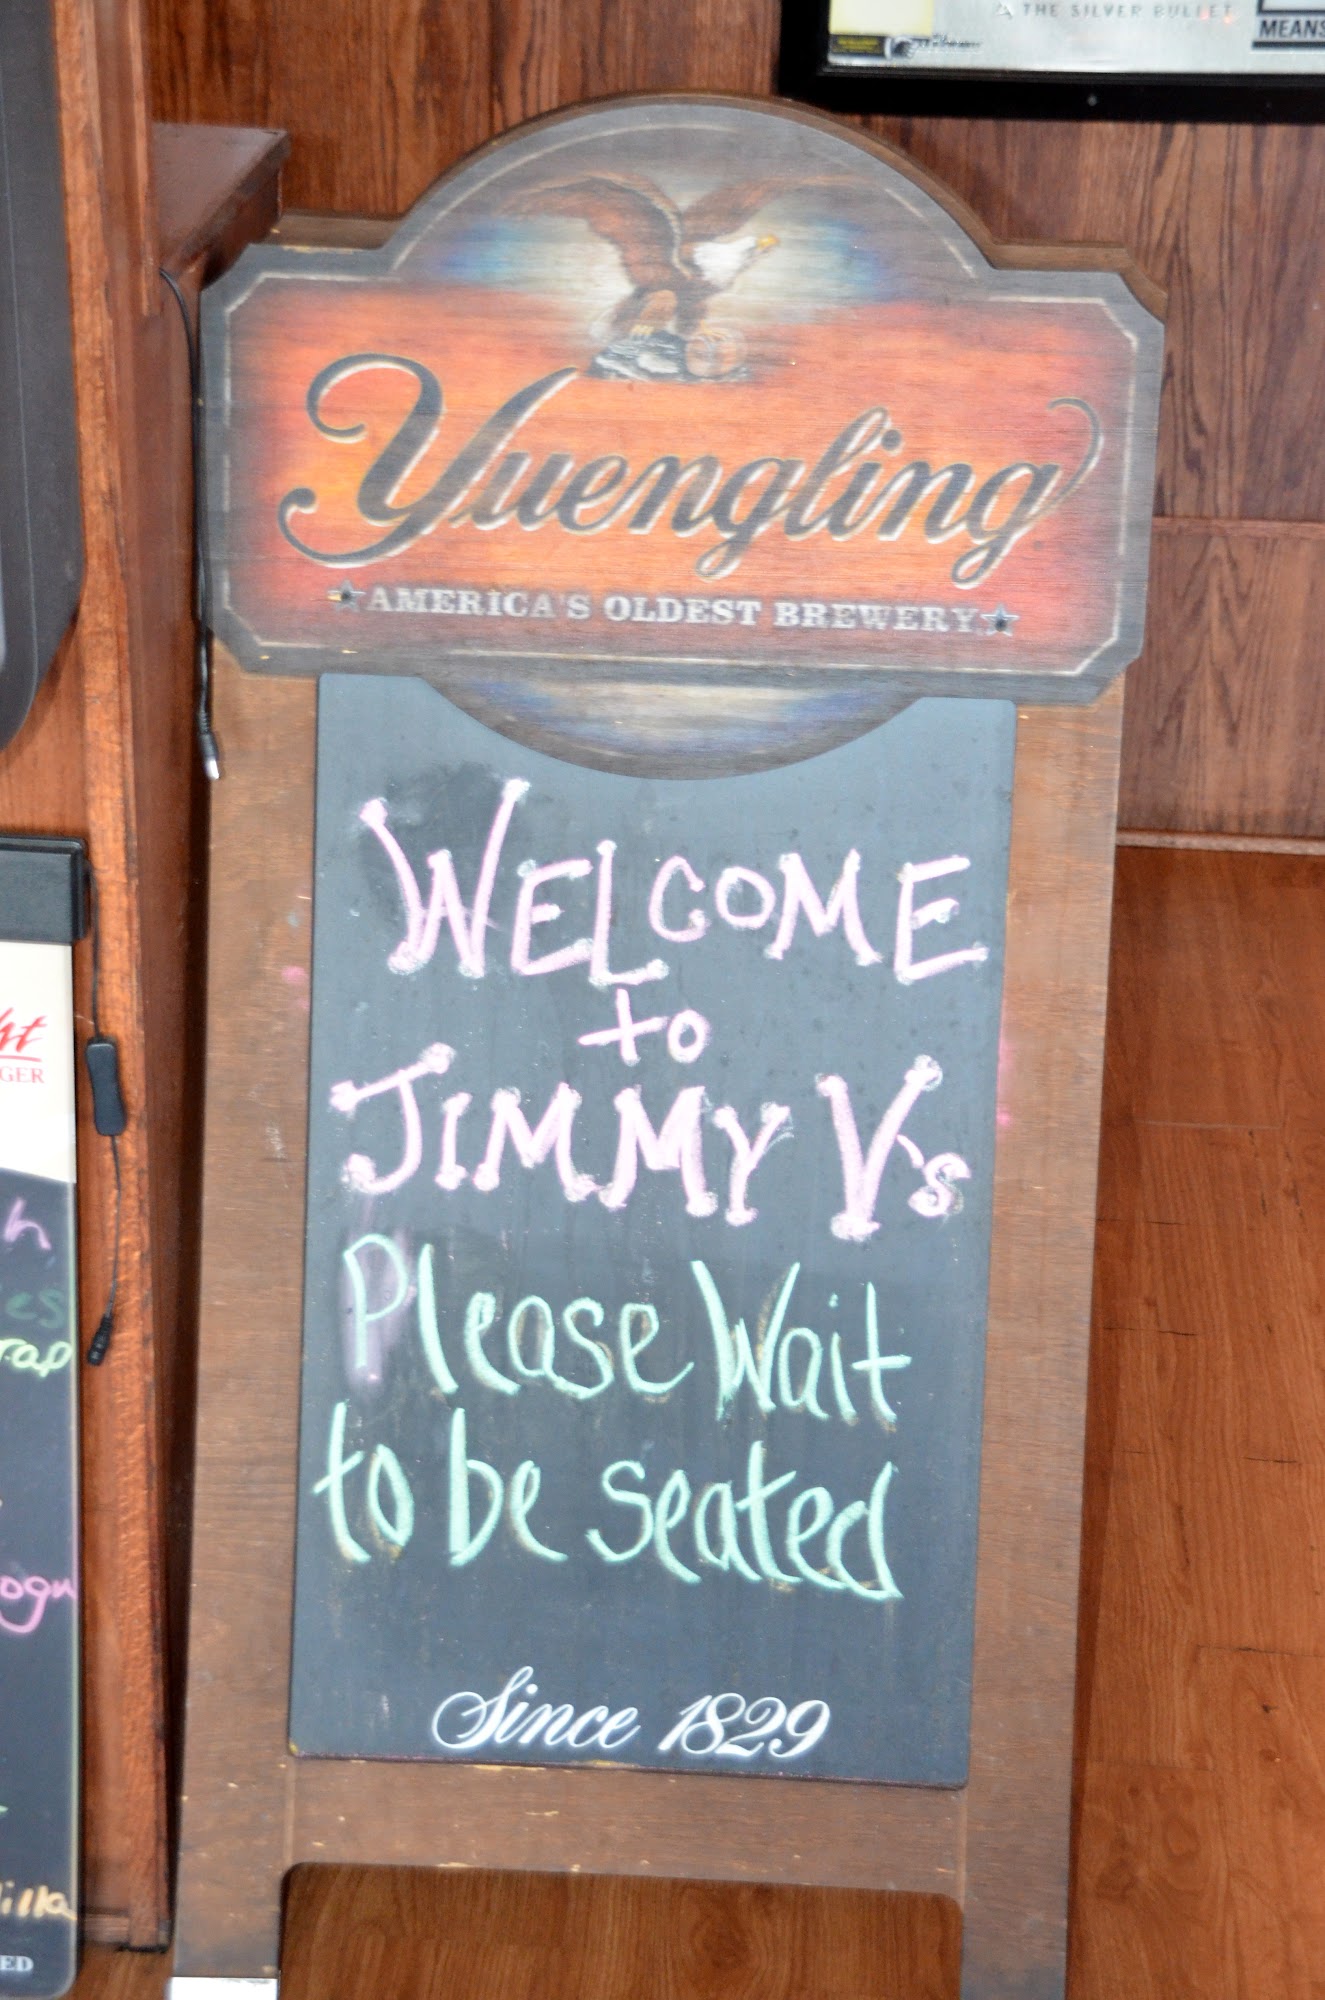 THE SILVER BULLET
MEANS
Yuengling
AMERICA'S OLDEST BREWERY
WELCOME
to
JIMMY V's
Please Wait
to be seated
Since 1829